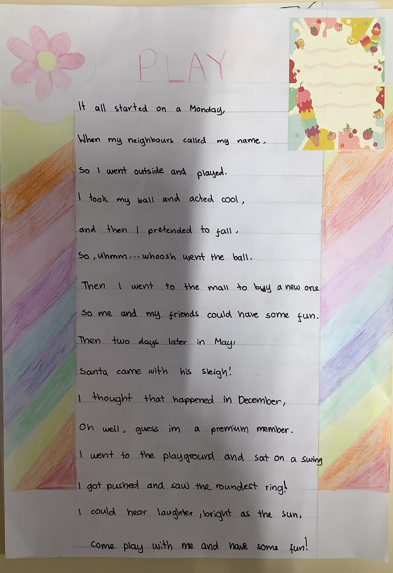 PLAY
It all started on a Monday,
When my neighbours called my name.
So I went outside and played.
I took my ball and acted cool,
and then I pretended to fall,
So, uhmm... whoosh went the ball.
Then I went to the mall to buy a new one
So me and my friends could have some fun.
Then two days later in May
Santa came with his sleigh!
I thought that happened in December,
Oh well, guess im a premium member.
I went to the playground and sat on a swing
I got pushed and saw the roundest ring!
I could hear laughter, bright as the sun,
Come play with me and have some fun!